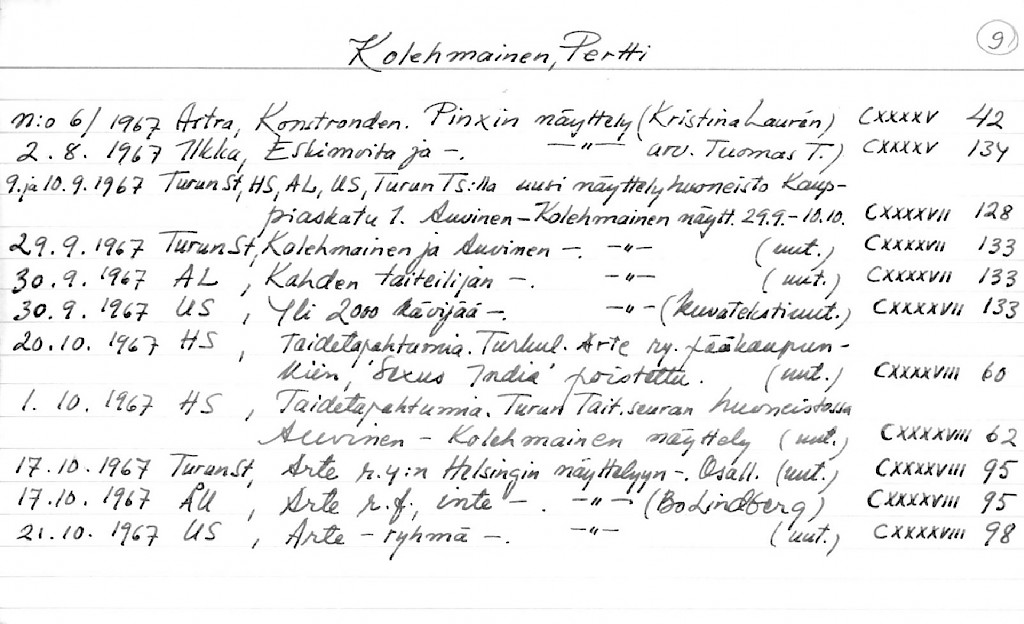 9
Kolehmainen, Pertti
n:o 6/1967 Astra, Konstronden. Pinxin näyttely (Kristina Laurén) CXXXXV 42
2.8.1967 Ilkka, Eskimoita ja –. –"– arv. Tuomas T.) CXXXXV 134
9. ja 10.9.1967 Turun St, HS, AL, US, Turun Ts:lla uusi näyttelyhuoneisto Kaup-
piaskatu 1. Auvinen–Kolehmainen näytt. 29.9.–10.10. CXXXXVII 128
29.9.1967 Turun St, Kolehmainen ja Auvinen –. –"– (uut.) CXXXXVII 133
30.9.1967 AL, Kahden taiteilijan –. –"– (uut.) CXXXXVII 133
30.9.1967 US, Yli 2000 kävijää –. –"– (kuvatekstiuut.) CXXXXVII 133
20.10.1967 HS, Taidetapahtumia. Turkul. Arte ry. pääkaupun-
kiin, 'Sexus India' poistettu. (uut.) CXXXXVIII 60
1.10.1967 HS, Taidetapahtumia. Turun Tait.seuran huoneistossa
Auvinen – Kolehmainen näyttely (uut.) CXXXXVIII 62
17.10.1967 Turun St, Arte r.y:n Helsingin näyttelyyn –. Osall. (uut.) CXXXXVIII 95
17.10.1967 ÅU, Arte r.f., inte –. –"– (Bo Lindberg) CXXXXVIII 95
21.10.1967 US, Arte – ryhmä –. –"– (uut.) CXXXXVIII 98